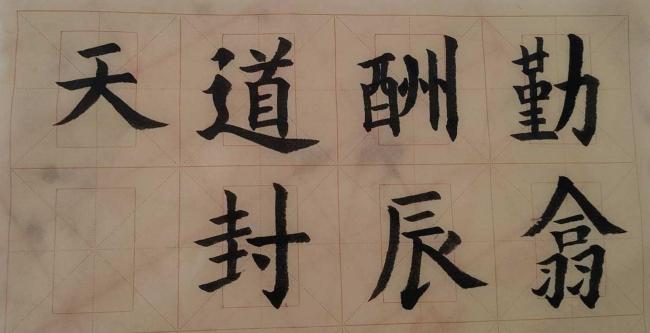 天道酬勤
封辰翕